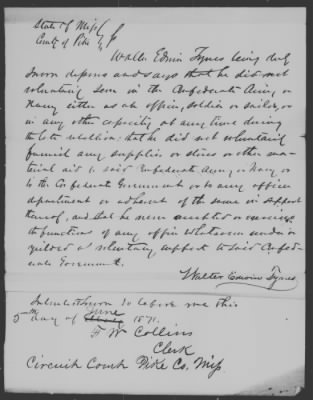 State of Miss
County of Pike
Walter Edwin Tynes being duly
sworn deposes and says that he did not
voluntarily serve in the Confederate Army or
Navy either as an officer, soldier or sailor, or
in any other capacity at any time during
the late rebellion: that he did not voluntarily
furnish any supplies or stores or other ma-
terial aid to said Confederate Army or Navy or
to the Confederate Government or to any officer
department or adherent of the same in support
thereof, and that he never accepted or exercised
the functions of any office whatsoever under or
yielded a voluntary support to said Confed-
erate Government.
Walter Edwin Tynes
Subscribed & sworn to before me this
5th day of June 1871.
F W Collins
Clerk
Circuit Court Pike Co. Miss